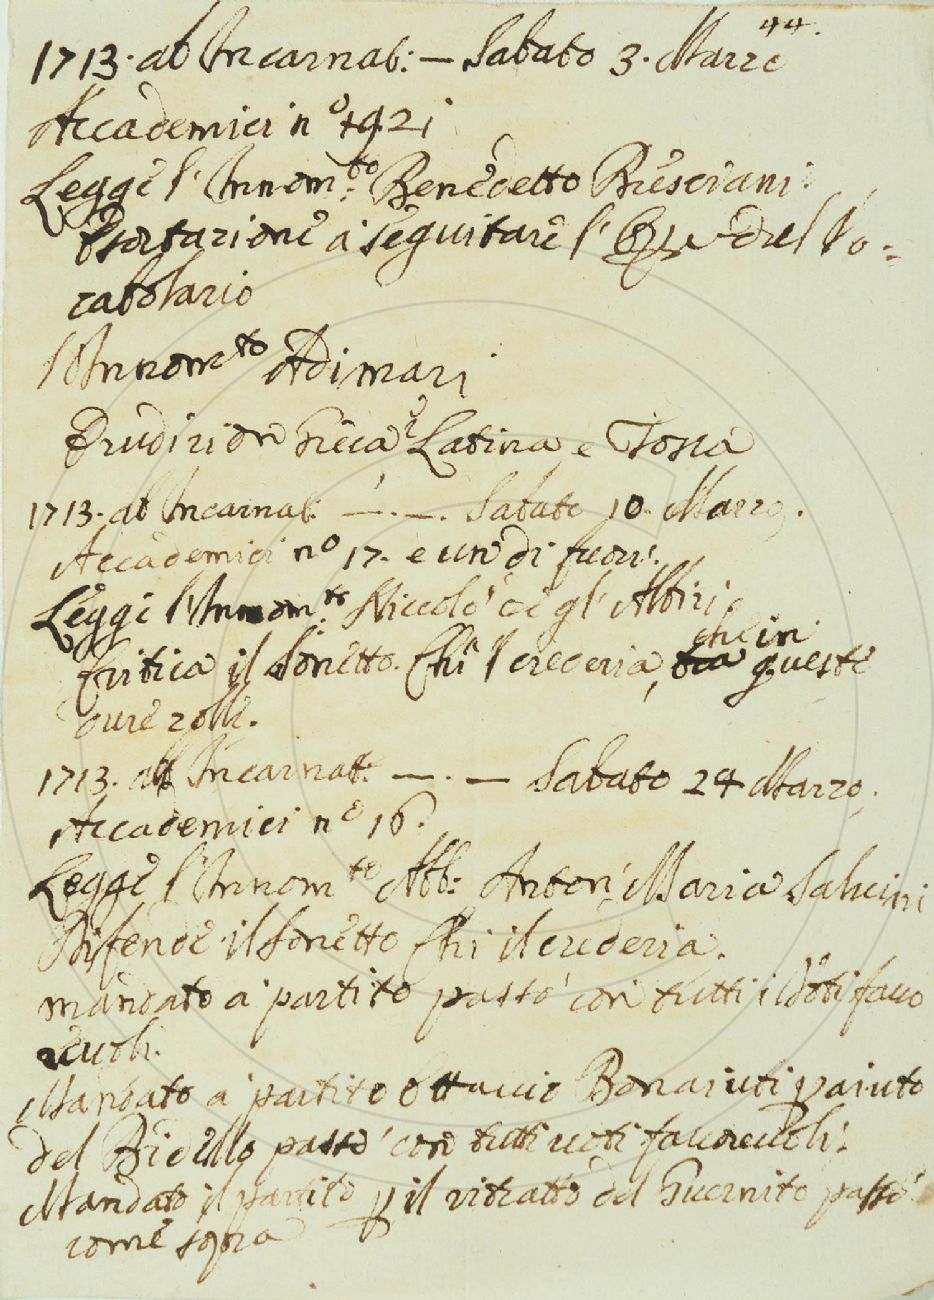 44.
1713. ab Incarnat: — Sabato 3. Marzo
Accademici nº 21
Leggè l'Innom.to Benedetto Bresciani.
Esortazione a seguitare l' del Vo-
cabolario
l'Innom.to Adimari
Erudizion Greca Latina e Tosca
1713. ab Incarnat. —.—. Sabato 10. Marzo.
Accademici nº 17. e un di fuori.
Leggè l'Innom.to Niccolò degl'Albizi
Critica il Sonetto. Chi 'l crederia, che in queste
dure zolle.
1713. ab Incarnat. —.— Sabato 24 Marzo.
Accademici nº 16.
Leggè l'Innom.to Abb: Anton Maria Salvini
Difende il Sonetto Chi il crederia.
mandato a partito passò con tutti i Voti favo
revoli.
Mandato a partito Ottavio Bonaiuti p aiuto
del Bidello passò con tutti voti favorevoli.
Mandato il partito p il ritratto del Guernito passò
come sopra